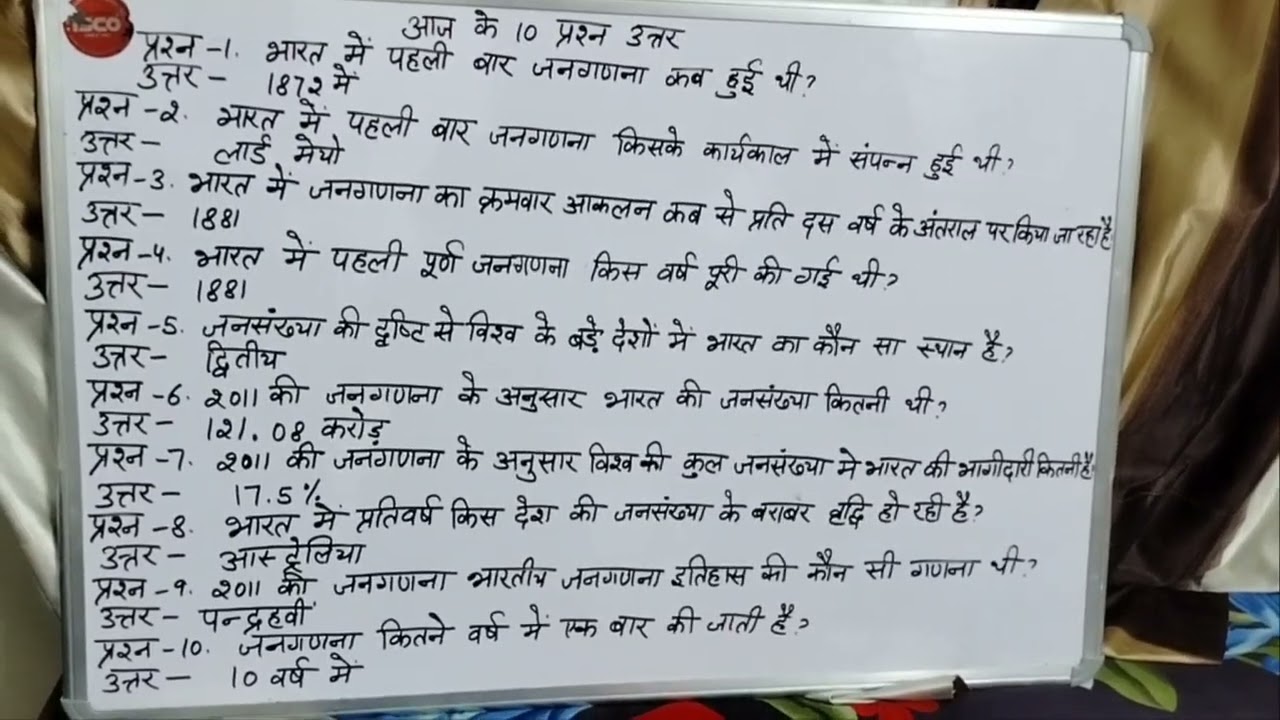 आज के 10 प्रश्न उत्तर
प्रश्न -1. भारत में पहली बार जनगणना कब हुई थी?
उत्तर - 1872 में
प्रश्न -2. भारत में पहली बार जनगणना किसके कार्यकाल में संपन्न हुई थी?
उत्तर - लार्ड मेयो
प्रश्न -3. भारत में जनगणना का क्रमवार आकलन कब से प्रति दस वर्ष के अंतराल पर किया जा रहा है
उत्तर - 1881
प्रश्न -4. भारत में पहली पूर्ण जनगणना किस वर्ष पूरी की गई थी?
उत्तर - 1881
प्रश्न -5. जनसंख्या की दृष्टि से विश्व के बड़े देशों में भारत का कौन सा स्थान है?
उत्तर - द्वितीय
प्रश्न -6. 2011 की जनगणना के अनुसार भारत की जनसंख्या कितनी थी?
उत्तर - 121.08 करोड़
प्रश्न -7. 2011 की जनगणना के अनुसार विश्व की कुल जनसंख्या मे भारत की भागीदारी कितनी है
उत्तर - 17.5%
प्रश्न -8. भारत में प्रतिवर्ष किस देश की जनसंख्या के बराबर वृद्धि हो रही है?
उत्तर - आस्ट्रेलिया
प्रश्न -9. 2011 की जनगणना भारतीय जनगणना इतिहास की कौन सी गणना थी?
उत्तर - पन्द्रहवीं
प्रश्न -10. जनगणना कितने वर्ष में एक बार की जाती है?
उत्तर - 10 वर्ष में